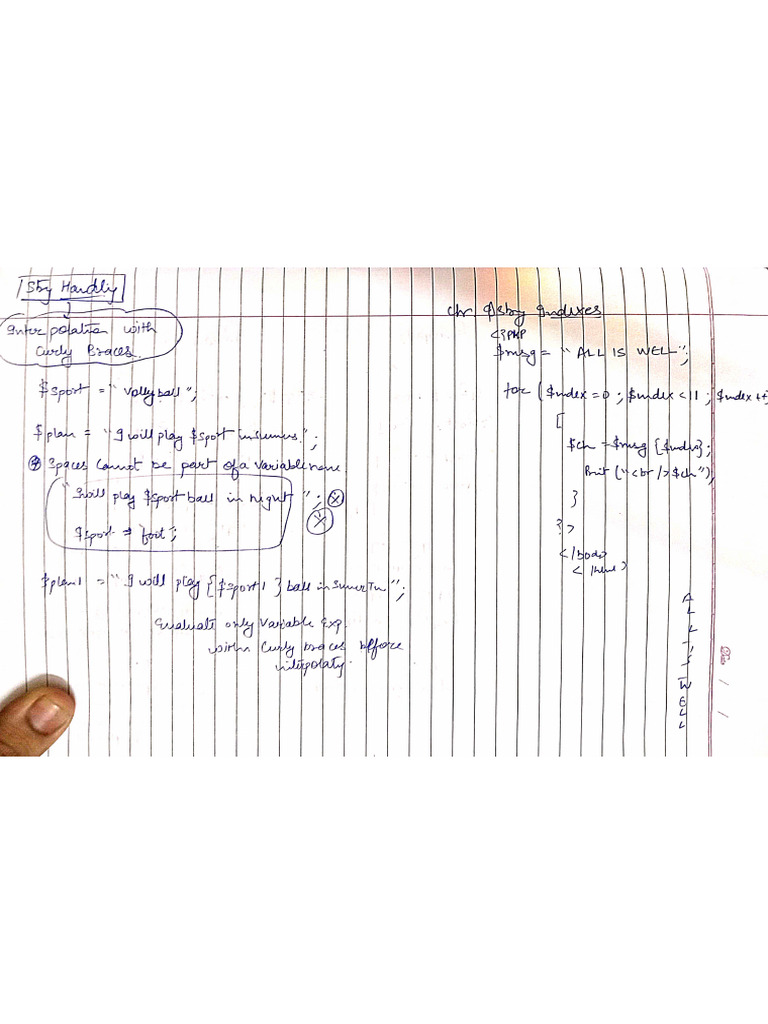 Stry Handling
Interpolation with
Curly Braces.
$sport = "Volleyball";
$plan = "I will play $sport in summer.";
Spaces cannot be part of a variable name
"I will play $sport ball in night ";
$sport = foot;
$plan1 = "I will play {$sport1} ball in
Evaluate only variable exp.
within curly braces before
chr $ Indexes
<?PHP
$msg = "ALL IS WELL";
for ($index=0; $index<11; $index++
$ch = $msg {$index};
Print ("<br/>$ch");
}
?>
</body>
</html>
A
L
L
I
S
W
E
L
L